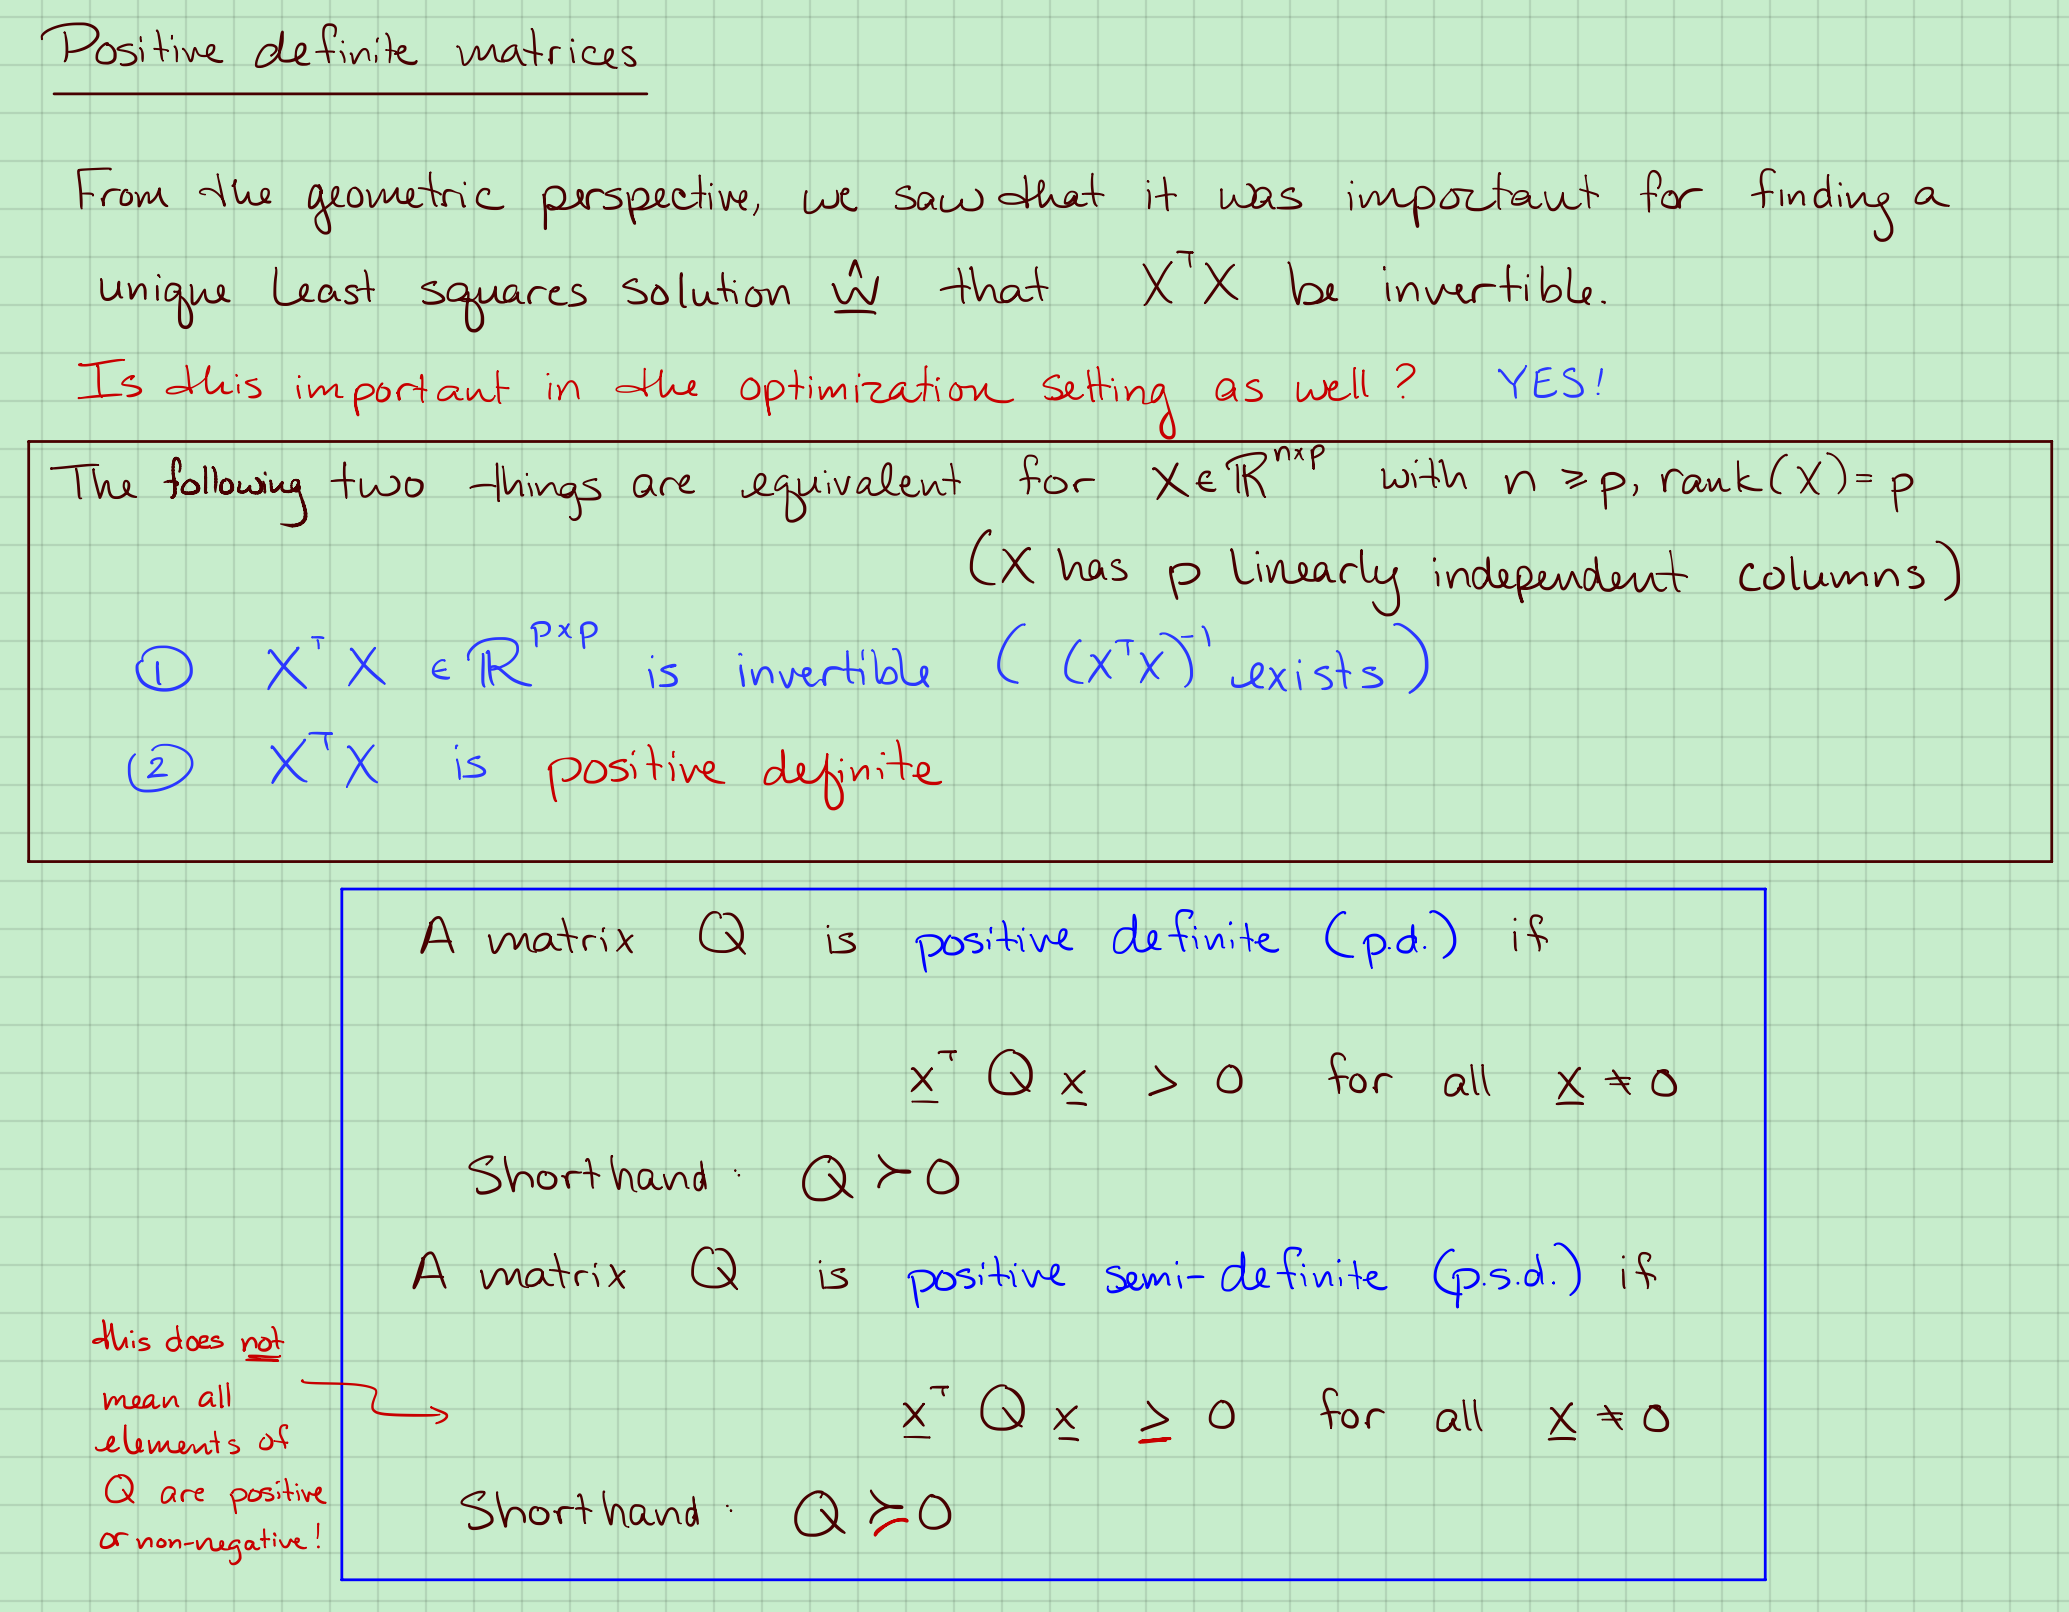 Positive definite matrices
From the geometric perspective, we saw that it was important for finding a
unique least squares solution ŵ that XᵀX be invertible.
Is this important in the optimization setting as well? YES!
The following two things are equivalent for X ∈ ℝⁿˣᵖ with n ≥ p, rank(X) = p
(X has p linearly independent columns)
① XᵀX ∈ ℝᵖˣᵖ is invertible ( (XᵀX)⁻¹ exists )
② XᵀX is positive definite
A matrix Q is positive definite (p.d.) if
xᵀ Q x > 0 for all x ≠ 0
Shorthand: Q ≻ 0
A matrix Q is positive semi-definite (p.s.d.) if
xᵀ Q x ≥ 0 for all x ≠ 0
Shorthand: Q ≽ 0
this does not
mean all
elements of
Q are positive
or non-negative!